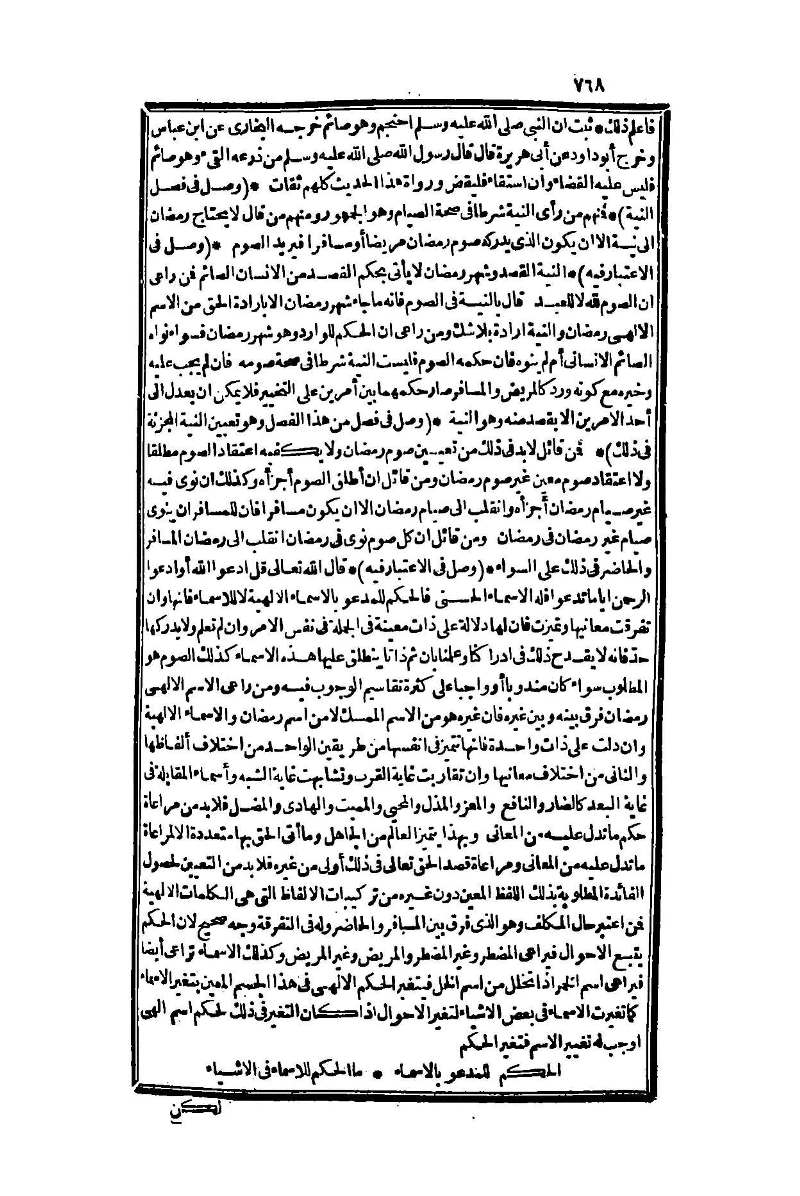 ٧٦٨
فاعلم ذلك * ثبت ان النبى صلى الله عليه وسلم احتجم وهو صائم خرجه البخارى عن ابن عباس
وخرج أبو داود عن أبى هريرة قال قال رسول الله صلى الله عليه وسلم من ذرعه القىء وهو صائم
فليس عليه القضاء وان استقاء فليقض ورواة هذا الحديث كلهم ثقات * (وصل فى فصل
النية) * فمنهم من رأى النية شرطا فى صحة الصيام وهو الجمهور ومنهم من قال لا يحتاج رمضان
الى نية الا ان يكون الذى يدركه صوم رمضان مريضا أو مسافرا فيريد الصوم * (وصل فى
الاعتبار فيه) * النية القصد وشهر رمضان لا يأتى بحكم القصد من الانسان الصائم فمن راعى
ان الصوم لله لا للعبد قال بالنية فى الصوم فانه ما جاء شهر رمضان الا بارادة الحق من الاسم
الالهى رمضان والنية ارادة بلا شك ومن راعى ان الحكم للوارد وهو شهر رمضان فسواء نواه
الصائم الانسانى أم لم ينوه فان حكمه الصوم فليست النية شرطا فى صحة صومه فان لم يجب عليه
وخيره مع كونه ورد كالمريض والمسافر صار حكمهما بين أمرين على التخيير فلا يمكن ان يعدل الى
أحد الامرين الا بقصد منه وهو النية * (وصل فى فصل من هذا الفصل وهو تعيين النية المجزئة
فى ذلك) * فمن قائل لا بد فى ذلك من تعيين صوم رمضان ولا يكفيه اعتقاد الصوم مطلقا
ولا اعتقاد صوم معين غير صوم رمضان ومن قائل ان أطلق الصوم أجزأه وكذلك ان نوى فيه
غير صيام رمضان أجزأه وانقلب الى صيام رمضان الا ان يكون مسافرا فان للمسافر ان ينوى
صيام غير رمضان فى رمضان ومن قائل ان كل صوم نوى فى رمضان انقلب الى رمضان المسافر
والحاضر فى ذلك على السواء * (وصل فى الاعتبار فيه) * قال الله تعالى قل ادعوا الله أو ادعوا
الرحمن اياما تدعوا فله الاسماء الحسنى فالحكم للمدعو بالاسماء الالهية لا للاسماء فانها وان
تفرقت معانيها وتميزت فان لها دلالة على ذات معينة فى الجملة فى نفس الامر وان لم تعلم ولا يدركها
حد فانه لا يقدح ذلك فى ادراكنا وعلمنا بان ثم ذاتا ينطلق عليها هذه الاسماء كذلك الصوم هو
المطلوب سواء كان مندوبا أو واجبا على كثرة تقاسيم الوجوب فيه ومن راعى الاسم الالهى
رمضان فرق بينه وبين غيره فان غيره هو من الاسم الممسك لا من اسم رمضان والاسماء الالهية
وان دلت على ذات واحدة فانها تتميز فى انفسها من طريقين الواحد من اختلاف ألفاظها
والثانى من اختلاف معانيها وان تقاربت غاية القرب وتشابهت غاية الشبه وأسماء المقابلة فى
غاية البعد كالضار والنافع والمعز والمذل والمحيى والمميت والهادى والمضل فلا بد من مراعاة
حكم ما تدل عليه من المعانى وبهذا يتميز العالم من الجاهل وما أتى الحق بها متعددة الا لمراعاة
ما تدل عليه من المعانى ومراعاة قصد الحق تعالى فى ذلك أولى من غيره فلا بد من التعيين لحصول
الفائدة المطلوبة بذلك اللفظ المعين دون غيره من تركيبات الالفاظ التى هى الكلمات الالهية
فمن اعتبر حال المكلف وهو الذى فرق بين المسافر والحاضر وله فى التفرقة وجه صحيح لان الحكم
يتبع الاحوال فيراعى المضطر وغير المضطر والمريض وغير المريض وكذلك الاسماء تراعى أيضا
فيراعى اسم الخمر اذا تخلل من اسم الخل فيتغير الحكم الالهى فى هذا الجسم المعين بتغير الاسماء
كما تغيرت الاسماء فى بعض الاشياء لتغير الاحوال اذا كان التغير فى ذلك لحكم اسم الهى
اوجب له تغيير الاسم فتغير الحكم
الحكم للمدعو بالاسماء * ما الحكم للاسماء فى الاشياء
لكن